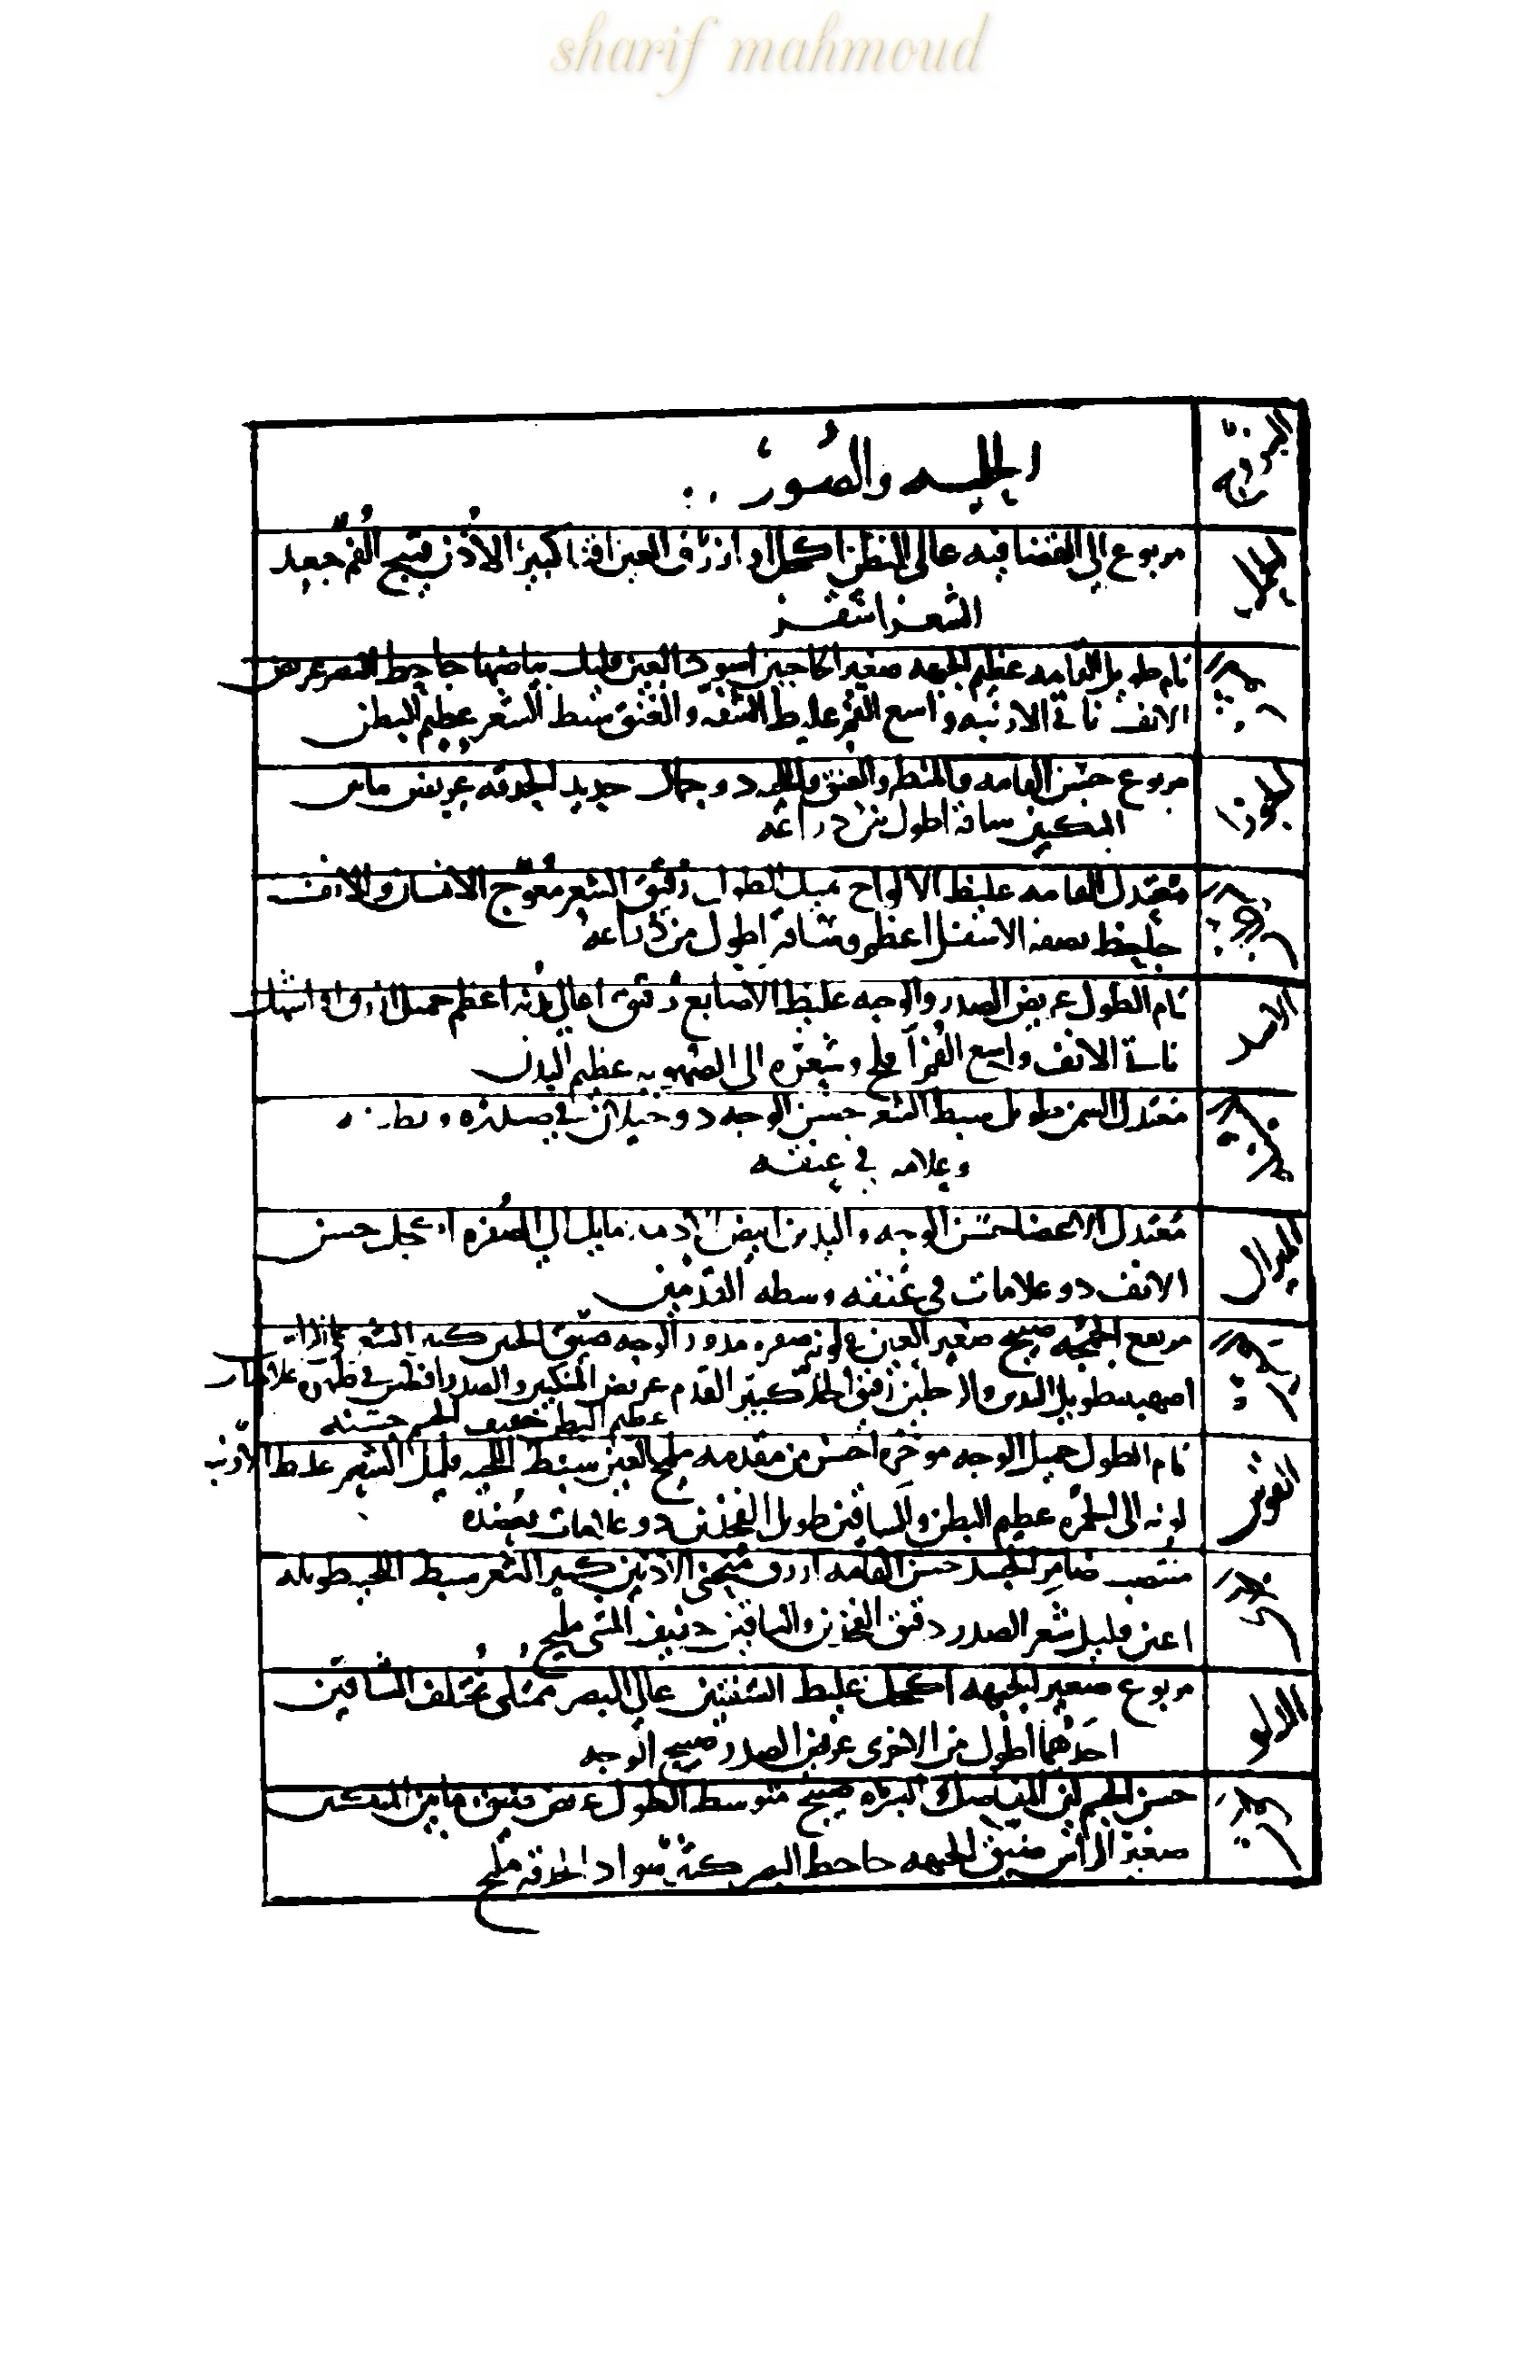 sharif mahmoud
البروج
الحليه والصور
الحمل
مربوع الى القضافه عالى النظر اكحل او ازرق العين اقنا كبير الاذن قبيح الفم جعد
الشعر اشقر
الثور
تام طويل القامه عظيم الجبهه صغير الحاجبين اسود العين قليل بياضها جاحظ البصر عريض
الانف ناتى الارنبه واسع الفم غليظ الشفه والعنق سبط الشعر عظيم البطن
الجوزا
مربوع حسن القامه والمنظر والعنق واللحيه ذو جمال حديد الحدقه عريض مابين
المنكبين ساقه اطول من ذراعه
السرطان
معتدل القامه غليظ الالواح الطول دقيق الشعر معوج الاسنان والانف
نصفه الاسفل اعظم وساقه اطول من ذراعه
الاسد
تام الطول عريض الصدر والوجه غليظ الاصابع دقيق اعالى بدنه اعظم جميل ازرق او اشهل
الانف واسع الفم افلج وشعره الى الصهوبه عظيم البدن
السنبله
معتدل السمن طويل سبط الشعر حسن الوجه ذو خيلان فى صدره
وعلامه فى عنقه
الميزان
معتدل الاعضا حسن الوجه واليدين ابيض مايل الى الصفره اكحل حسن
الانف ذو علامات فى عنقه وسطه القدمين
العقرب
صبيح صغير العين لونه صفره مدور الوجه ضيق الجبين
اصهب طويل والرجلين كبير القدم عريض المنكبين والصدر افطس فى ظهره علامات
عظيم البطن خفيف اللحم حسنه
القوس
تام الطول جميل الوجه موخره احسن من مقدمه مليح العين سبط اللحيه قليل الشعر غليظ الارنبه
لونه الى الحمره عظيم البطن والساقين طويل الفخذين ذو علامات بعضده
الجدى
منتصب ضامر الجسد حسن القامه ازرق الاذنين كبير الشعر سبط اللحيه طويله
اعين قليل شعر الصدر دقيق الفخذين والساقين المشى مليح
الدلو
مربوع صغير الجبهه اكحل غليظ الشفتين عالى البصر ممتلى مختلف الساقين
احدهما اطول من الاخرى عريض الصدر صبيح الوجه
الحوت
حسن الجسم لين المفاصل البشره صبيح متوسط الطول مابين المنكبين
صغير الراس ضيق الجبهه جاحظ البصر سواد الحدقه مليح